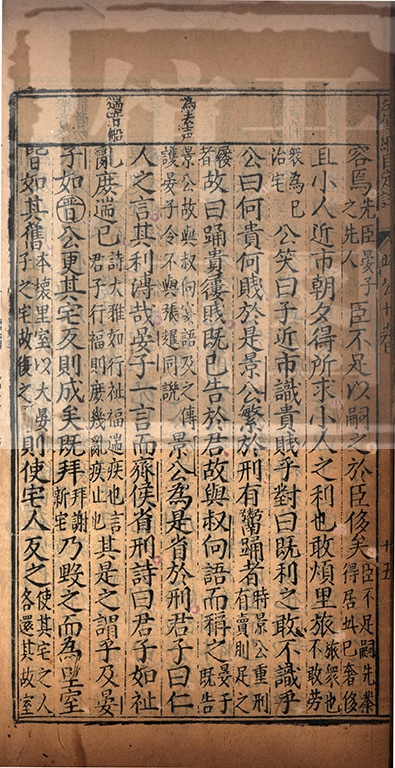 容焉先臣晏子之先人臣不足以嗣之於臣侈矣臣不足嗣先業得居此已奢侈
且小人近市朝夕得所求小人之利也敢煩里旅旅衆也不敢勞
衆為己治宅公笑曰子近市識貴賤乎對曰既利之敢不識乎
公曰何貴何賤於是景公繁於刑有鬻踊者時景公重刑有賣刖足之
屨者故曰踊貴屨賤既已告於君故與叔向語而稱之晏子既告
景公故與叔向宴語及之傳護晏子令不與張趯同譏景公為是省於刑君子曰仁
為去声
人之言其利溥哉晏子一言而齊侯省刑詩曰君子如祉
亂庶遄已詩大雅如行祉福遄疾也言君子行福則庶幾亂疾止也其是之謂乎及晏
遄音船
子如晉公更其宅反則成矣既拜拜謝新宅乃毀之而為里室
皆如其舊本壞里室以大晏子之宅故復之則使宅人反之使其宅之人各還其故室
十五